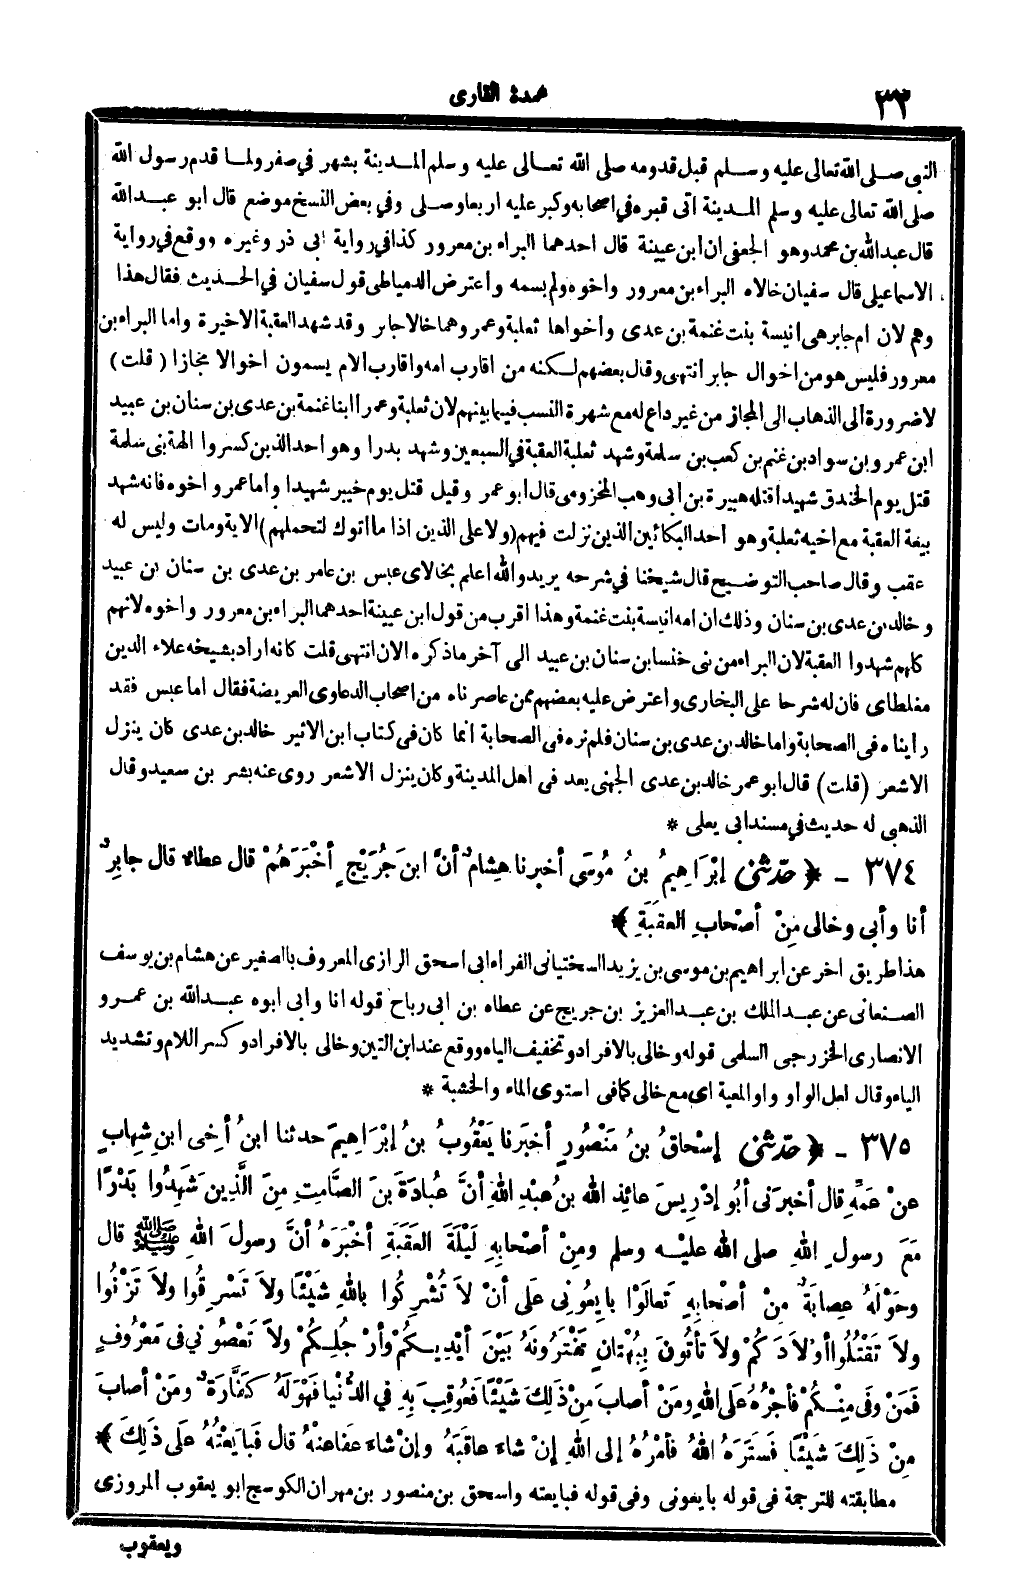 ٣٢
عمدة القارى
النبى صلى الله تعالى عليه وسلم قبل قدومه صلى الله تعالى عليه وسلم المدينة بشهر في صفر ولما قدم رسول الله
صلى الله تعالى عليه وسلم المدينة أتى قبره في اصحابه وكبر عليه اربعا وصلى وفي بعض النسخ موضع قال ابو عبدالله
قال عبدالله بن محمد وهو الجعفى ان ابن عيينة قال احدهما البراء بن معرور كذا في رواية ابى ذر وغيره ووقع في رواية
الاسماعيلى قال سفيان خالاه البراء بن معرور واخوه ولم يسمه واعترض الدمياطى قول سفيان في الحديث فقال هذا
وهم لان ام جابر هى انيسة بنت غنمة بن عدى واخواها ثعلبة وعمرو هما خالا جابر وقد شهد العقبة الاخيرة واما البراء بن
معرور فليس هو من اخوال جابر انتهى وقال بعضهم لكنه من اقارب امه واقارب الام يسمون اخوالا مجازا ( قلت )
لاضرورة الى الذهاب الى المجاز من غير داع له مع شهرة النسب فيما بينهم لان ثعلبة وعمرا ابنا غنمة بن عدى بن سنان بن عبيد
ابن عمرو بن سواد بن غنم بن كعب بن سلمة وشهد ثعلبة العقبة في السبعين وشهد بدرا وهو احد الذين كسروا الهة بنى سلمة
قتل يوم الخندق شهيدا قتله هبيرة بن ابى وهب المخزومى قال ابو عمر وقيل قتل يوم خيبر شهيدا واما عمرو اخوه فانه شهد
بيعة العقبة مع اخيه ثعلبة وهو احد البكائين الذين نزلت فيهم (ولا على الذين اذا ما اتوك لتحملهم) الاية ومات وليس له
عقب وقال صاحب التوضيح قال شيخنا في شرحه يريد والله اعلم بخالاى عبس بن عامر بن عدى بن سنان بن عبيد
وخالد بن عدى بن سنان وذلك ان امه انيسة بنت غنمة وهذا اقرب من قول ابن عيينة احدهما البراء بن معرور واخوه لانهم
كلهم شهدوا العقبة لان البراء من بنى خنسا بن سنان بن عبيد الى آخر ماذكره الان انتهى قلت كانه اراد بشيخه علاء الدين
مغلطاى فان له شرحا على البخارى واعترض عليه بعضهم ممن عاصرناه من اصحاب الدعاوى العريضة فقال اما عبس فقد
رأيناه فى الصحابة واما خالد بن عدى بن سنان فلم نره فى الصحابة انما كان فى كتاب ابن الاثير خالد بن عدى كان ينزل
الاشعر (قلت) قال ابو عمر خالد بن عدى الجهنى يعد فى اهل المدينة وكان ينزل الاشعر روى عنه بشر بن سعيد وقال
الذهبى له حديث في مسند ابى يعلى *
٣٧٤ - ﴿ حدثنى إبْرَاهِيمُ بنُ مُوسَى أخبرنا هِشَامٌ أنَّ ابنَ جُرَيْجٍ أخْبَرَهُمْ قال عطاء قال جابِرٌ
أنا وأبى وخالى مِنْ أصْحابِ العقَبَةِ ﴾
هذا طريق اخر عن ابراهيم بن موسى بن يزيد السختيانى الفراء ابى اسحق الرازى المعروف بالصغير عن هشام بن يوسف
الصنعانى عن عبد الملك بن عبد العزيز بن جريج عن عطاء بن ابى رباح قوله انا وابى ابوه عبدالله بن عمرو
الانصارى الخزرجى السلمى قوله وخالى بالافراد وتخفيف الياء ووقع عند ابن التين وخالى بالافراد وكسر اللام وتشديد
الياء وقال لعل الواو واو المعية اى مع خالى كما فى استوى الماء والخشبة *
٣٧٥ - ﴿ حدثنى إسْحاقُ بنُ مَنْصُورٍ أخبَرنا يَعْقُوبُ بنُ إبْرَاهِيمَ حدثنا ابنُ أخِى ابنِ شِهابٍ
عنْ عَمِّهِ قال أخبرَنى أبُو إدْرِيسَ عائِذ الله بنُ عبْدِ اللهِ أنَّ عُبادَةَ بنَ الصَّامِتِ مِنَ الَّذِينَ شَهِدُوا بَدْرًا
مَعَ رسولِ اللهِ صلى الله عليْه وسلم ومِنْ أصْحابِهِ لَيْلَةَ العَقَبَةِ أخْبَرَهُ أنَّ رسولَ اللهِ ﷺ قال
وحَوْلَهُ عِصابَةٌ مِنْ أصْحابِهِ تَعالَوْا بايِعُونِى عَلَى أنْ لاَ تُشْرِكُوا باللهِ شَيْئًا ولاَ تَسْرِقُوا ولاَ تَزْنُوا
ولاَ تَقْتُلُوا أوْلاَدَكُمْ ولاَ تأتُونَ بِبُهْتانٍ تَفْتَرُونَهُ بَيْنَ أيْدِيكُمْ وأرْجُلِكُمْ ولاَ تَعْصُونِي فى مَعْرُوفٍ
فَمَنْ وفَى مِنْكُمْ فأجْرُهُ عَلَى اللهِ ومَنْ أصابَ مِنْ ذلِكَ شَيْئًا فَعُوقِبَ بِهِ في الدُّنْيا فَهْوَ لَهُ كَفَّارَةٌ ومَنْ أصابَ
مِنْ ذلِكَ شَيْئًا فَستَرَهُ اللهُ فأمْرُهُ إلى اللهِ إنْ شاءَ عاقبَهُ وإنْ شاءَ عفَا عنْهُ قال فَبايَعْتُهُ عَلَى ذَلِكَ ﴾
مطابقته للترجمة فى قوله بايعونى وفى قوله فبايعته واسحق بن منصور بن مهران الكوسج ابو يعقوب المروزى
ويعقوب